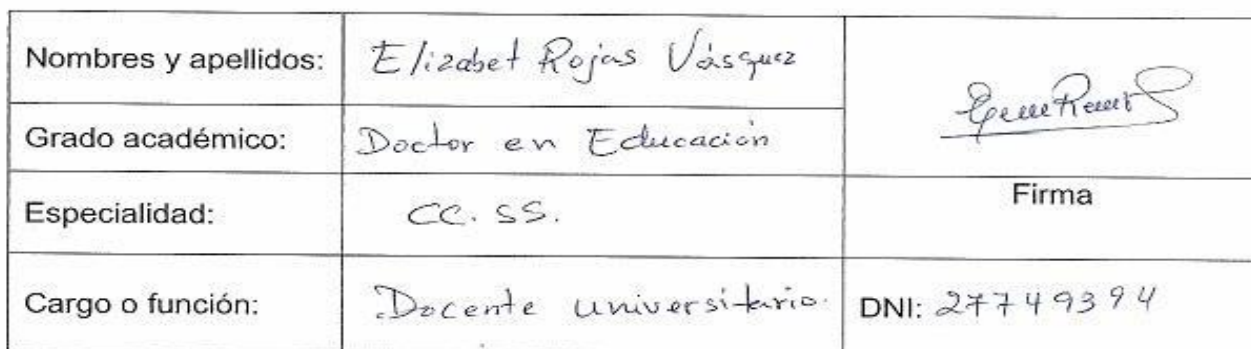 Nombres y apellidos: Elizabet Rojas Vásquez
Grado académico: Doctor en Educación
Firma
Especialidad: CC. SS.
Cargo o función: Docente universitario.
DNI: 27749394